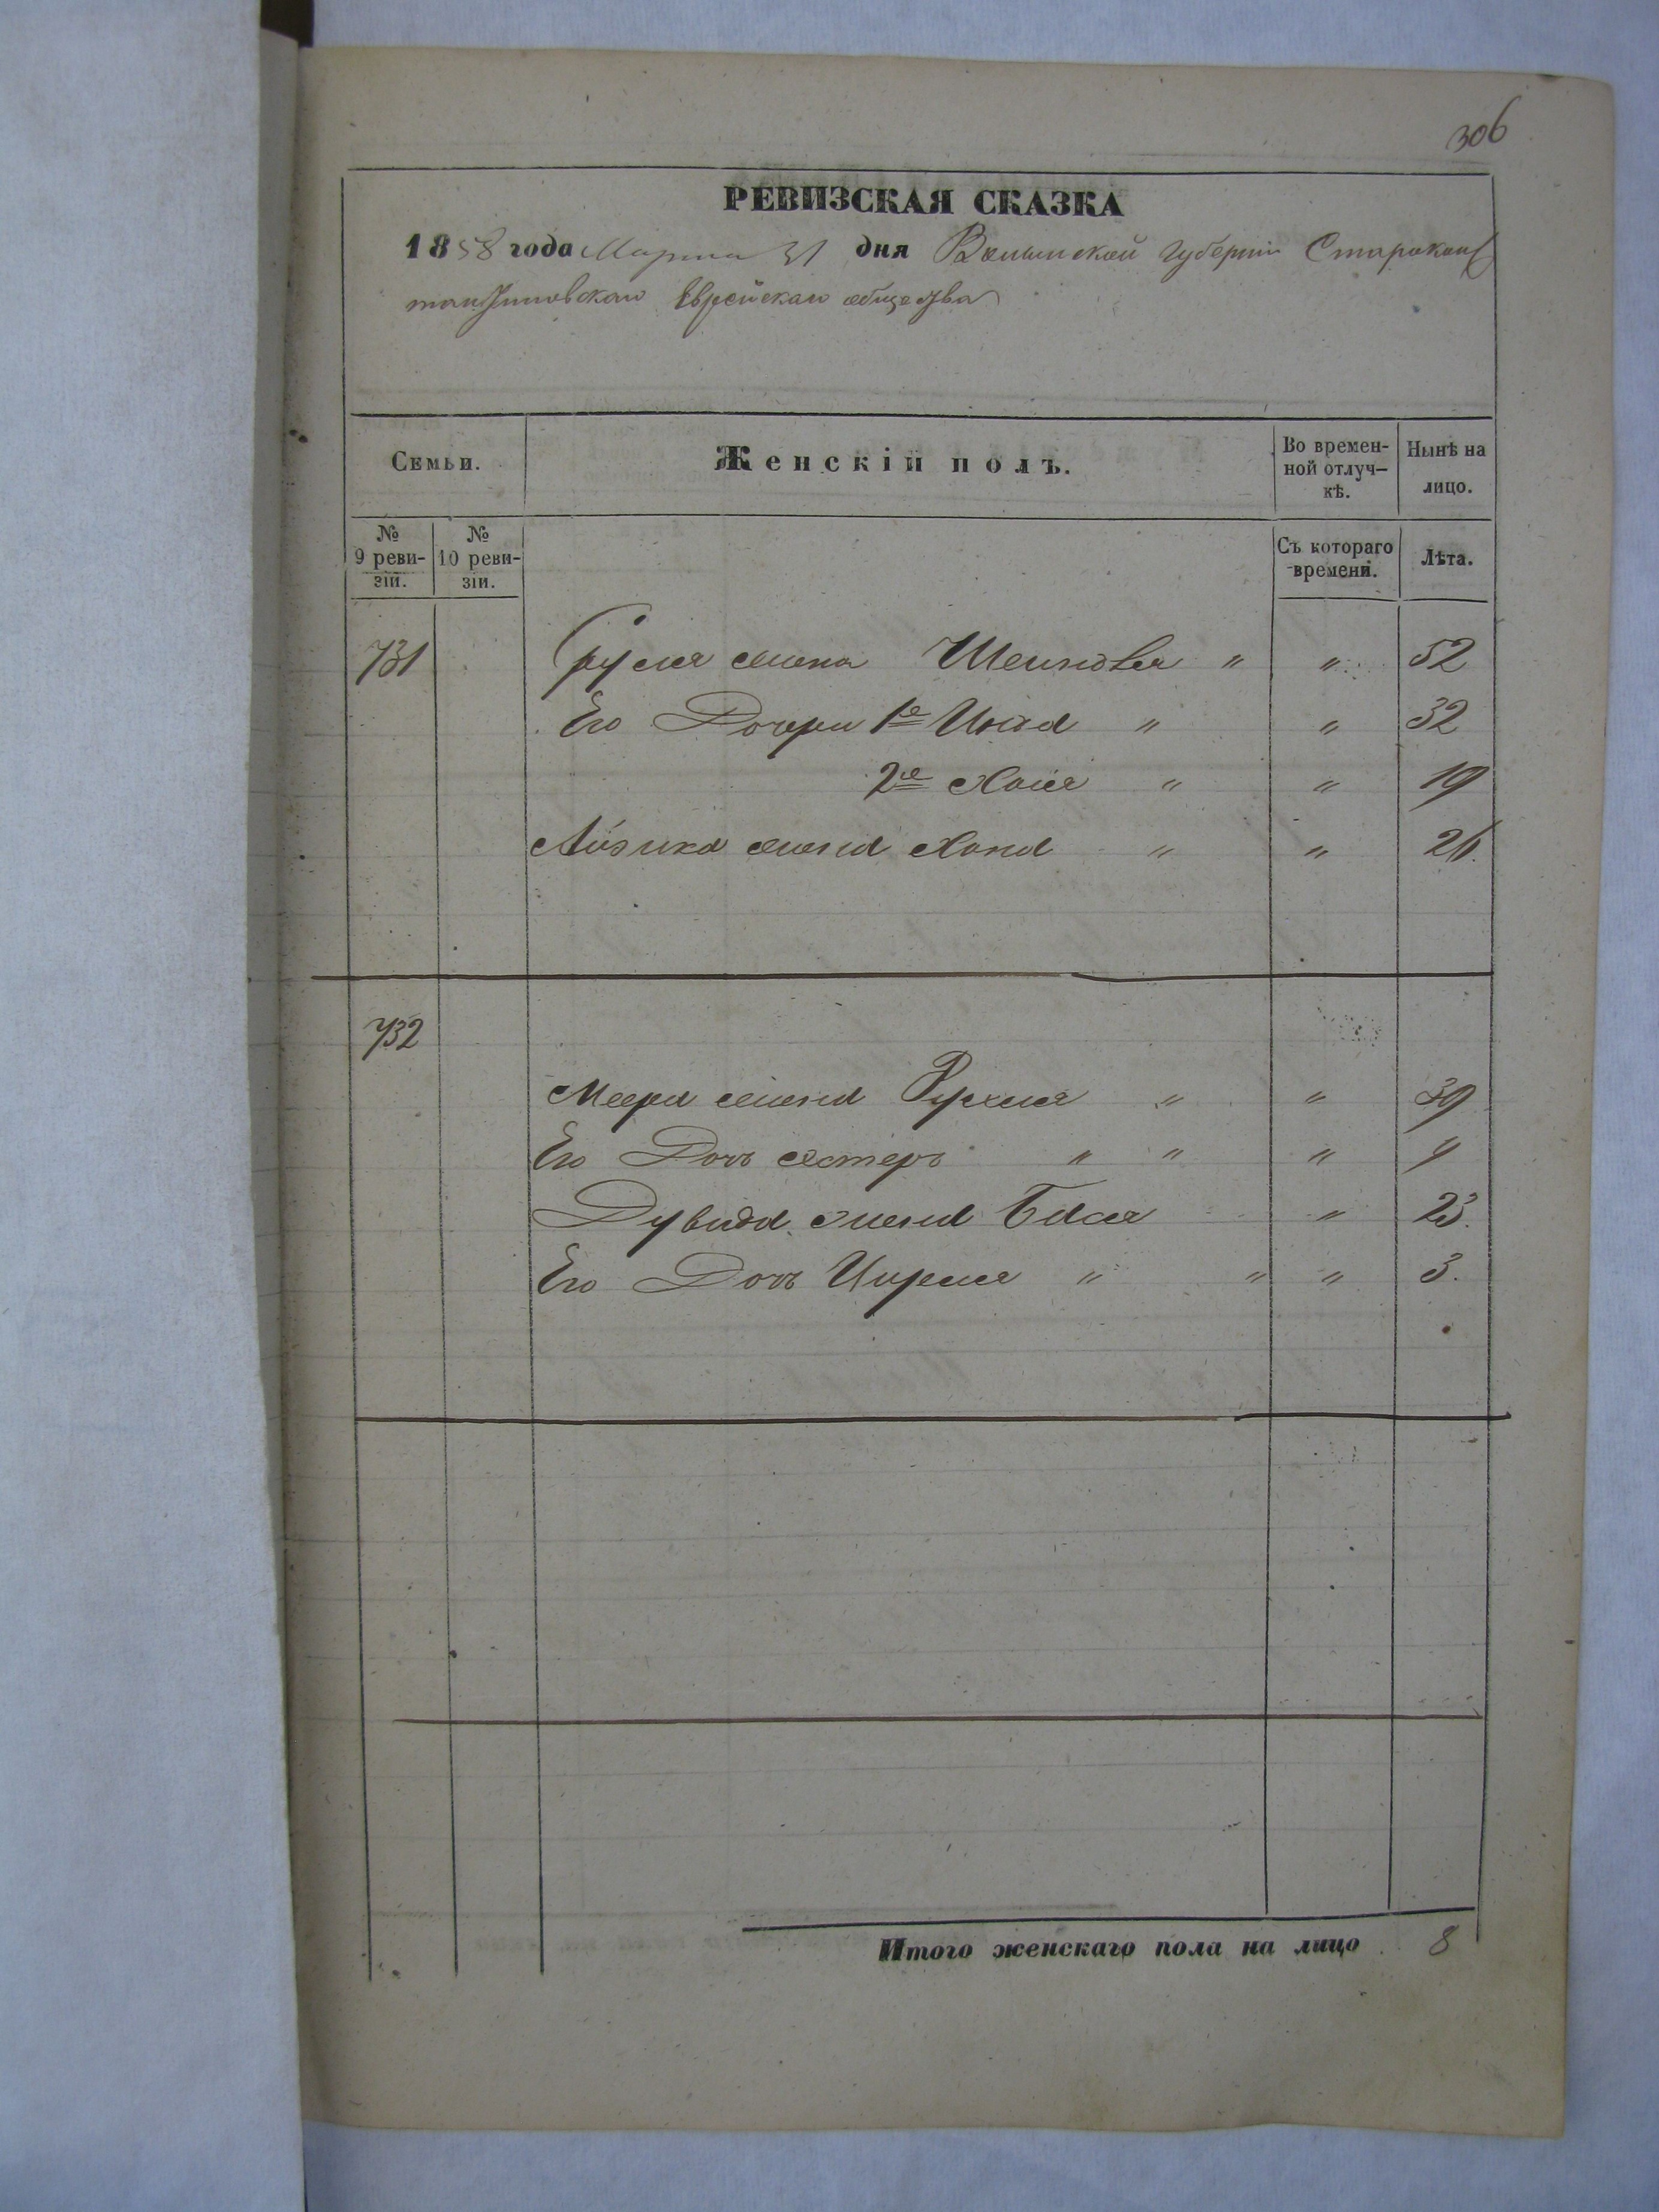 306
РЕВИЗСКАЯ СКАЗКА
1858 года Марта 31 дня Волынской губернии Старокон
тантиновскаго Еврейскаго общества
Семьи.
Женскій полъ.
Во времен-
ной отлуч-
кѣ.
Нынѣ на
лицо.
№
9 реви-
зіи.
№
10 реви-
зіи.
Съ котораго
времени.
Лѣта.
731 жена " " 52
Его Дочери 1я " " 32
2я Хая " " 19
Айзика жена Хана " " 26.
732
Меера жена Рухля " " 39
Его Дочь Эстеръ " " " 9
Дувида жена Бася " 23.
Его Дочь " " " 3.
Итого женскаго пола на лицо 8